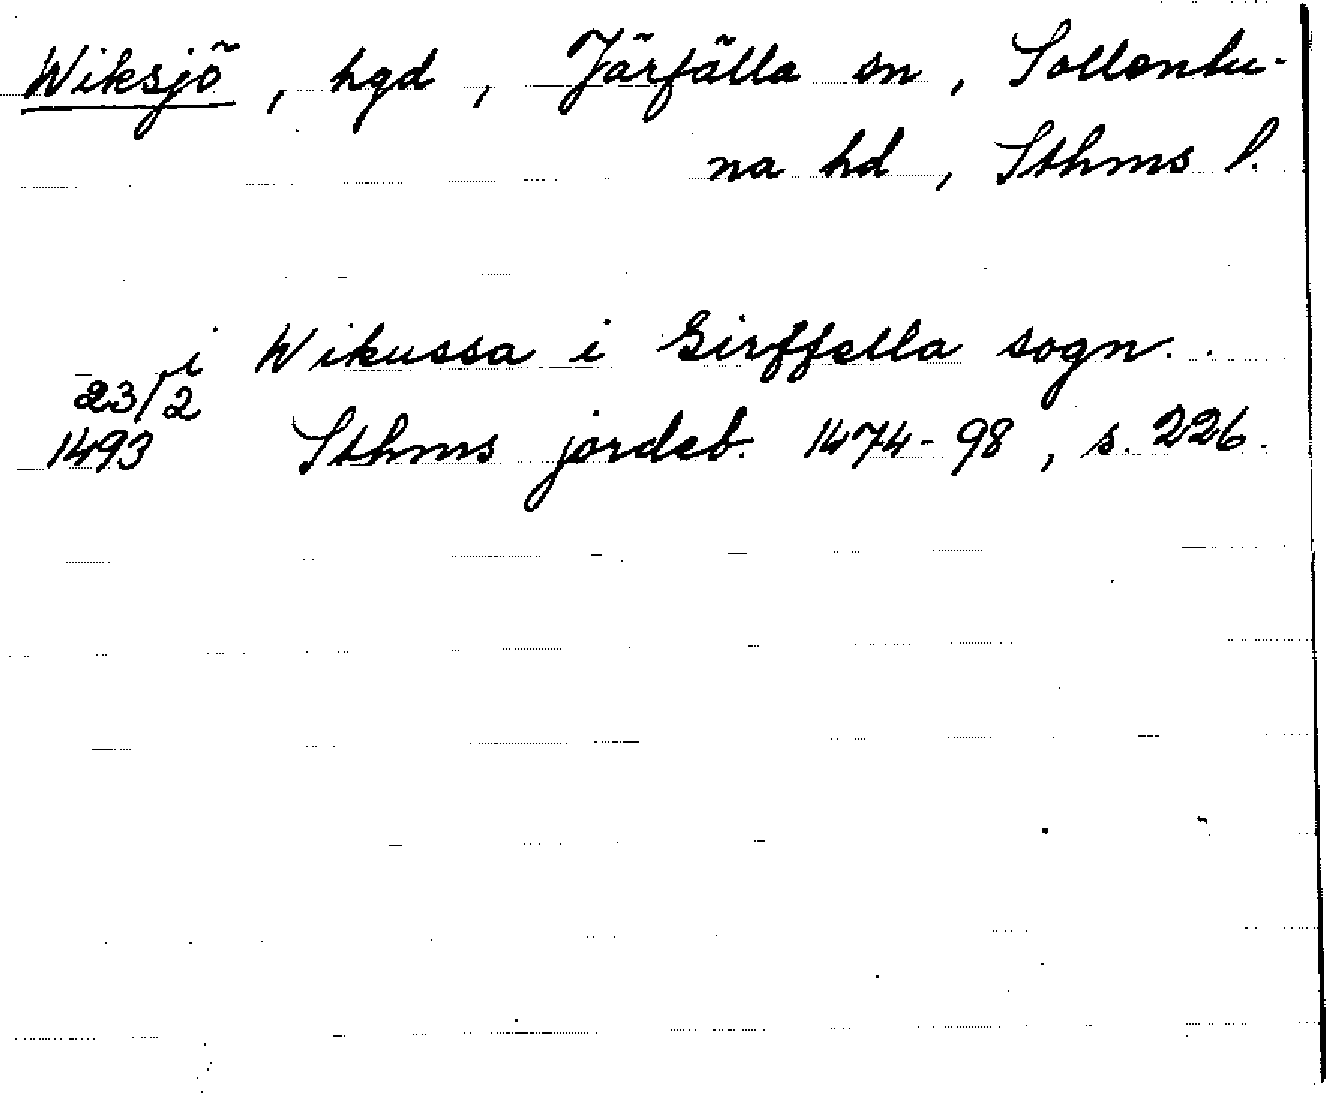 Wiksjö, hgd, Järfälla sn, Sollentu-
na hd, Sthms l.
i Wikussa i Girffella sogn..
23/2
1493 Sthms jordeb. 1474-98, s. 226.